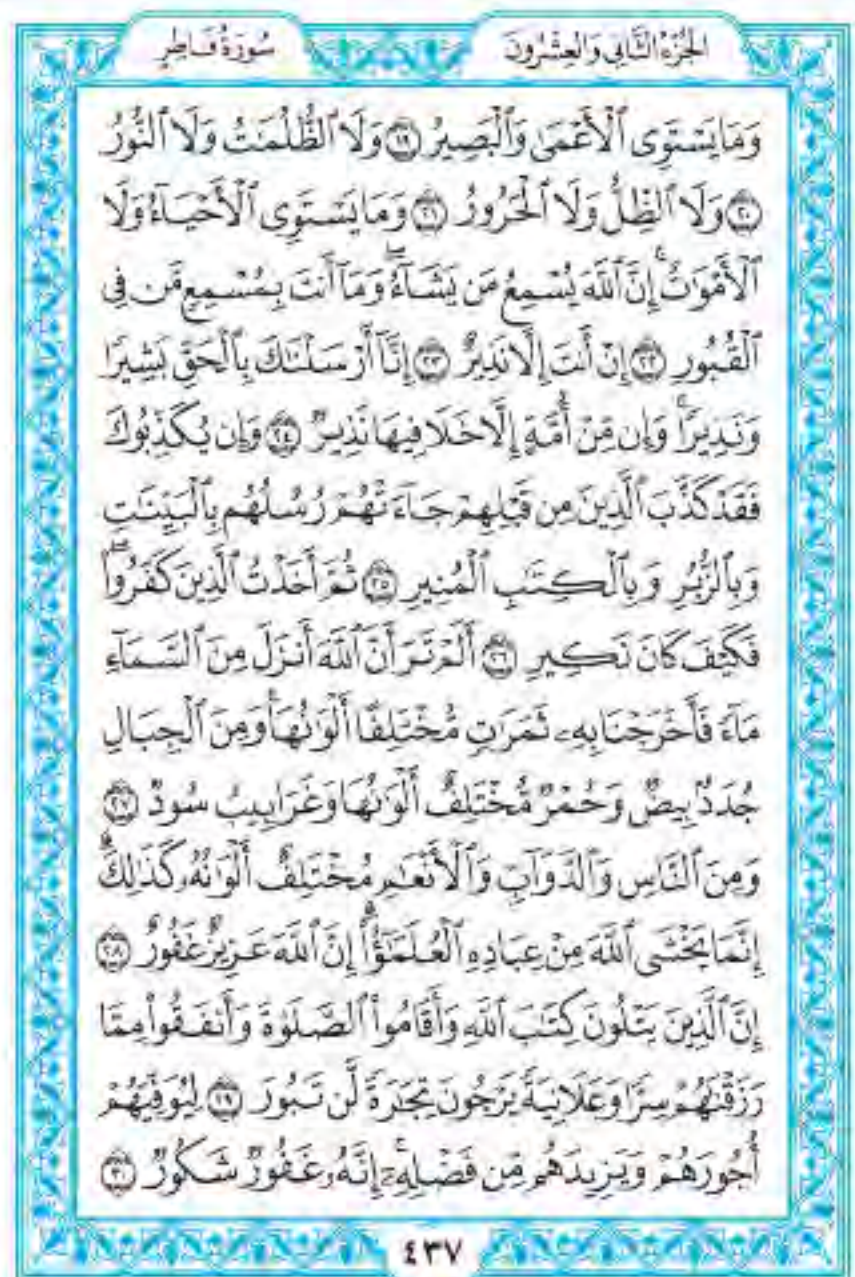 الجُزْءُ الثَّانِي وَالعِشْرُونَ سُورَةُ فَاطِرٍ
وَمَا يَسْتَوِى ٱلْأَعْمَىٰ وَٱلْبَصِيرُ ١٩ وَلَا ٱلظُّلُمَٰتُ وَلَا ٱلنُّورُ
٢٠ وَلَا ٱلظِّلُّ وَلَا ٱلْحَرُورُ ٢١ وَمَا يَسْتَوِى ٱلْأَحْيَآءُ وَلَا
ٱلْأَمْوَٰتُ ۚ إِنَّ ٱللَّهَ يُسْمِعُ مَن يَشَآءُ ۖ وَمَآ أَنتَ بِمُسْمِعٍ مَّن فِى
ٱلْقُبُورِ ٢٢ إِنْ أَنتَ إِلَّا نَذِيرٌ ٢٣ إِنَّآ أَرْسَلْنَٰكَ بِٱلْحَقِّ بَشِيرًا
وَنَذِيرًا ۚ وَإِن مِّنْ أُمَّةٍ إِلَّا خَلَا فِيهَا نَذِيرٌ ٢٤ وَإِن يُكَذِّبُوكَ
فَقَدْ كَذَّبَ ٱلَّذِينَ مِن قَبْلِهِمْ جَآءَتْهُمْ رُسُلُهُم بِٱلْبَيِّنَٰتِ
وَبِٱلزُّبُرِ وَبِٱلْكِتَٰبِ ٱلْمُنِيرِ ٢٥ ثُمَّ أَخَذْتُ ٱلَّذِينَ كَفَرُوا۟ ۖ
فَكَيْفَ كَانَ نَكِيرِ ٢٦ أَلَمْ تَرَ أَنَّ ٱللَّهَ أَنزَلَ مِنَ ٱلسَّمَآءِ
مَآءً فَأَخْرَجْنَا بِهِۦ ثَمَرَٰتٍ مُّخْتَلِفًا أَلْوَٰنُهَا ۚ وَمِنَ ٱلْجِبَالِ
جُدَدٌۢ بِيضٌ وَحُمْرٌ مُّخْتَلِفٌ أَلْوَٰنُهَا وَغَرَابِيبُ سُودٌ ٢٧
وَمِنَ ٱلنَّاسِ وَٱلدَّوَآبِّ وَٱلْأَنْعَٰمِ مُخْتَلِفٌ أَلْوَٰنُهُۥ كَذَٰلِكَ ۗ
إِنَّمَا يَخْشَى ٱللَّهَ مِنْ عِبَادِهِ ٱلْعُلَمَٰٓؤُا۟ ۗ إِنَّ ٱللَّهَ عَزِيزٌ غَفُورٌ ٢٨
إِنَّ ٱلَّذِينَ يَتْلُونَ كِتَٰبَ ٱللَّهِ وَأَقَامُوا۟ ٱلصَّلَوٰةَ وَأَنفَقُوا۟ مِمَّا
رَزَقْنَٰهُمْ سِرًّا وَعَلَانِيَةً يَرْجُونَ تِجَٰرَةً لَّن تَبُورَ ٢٩ لِيُوَفِّيَهُمْ
أُجُورَهُمْ وَيَزِيدَهُم مِّن فَضْلِهِۦٓ ۚ إِنَّهُۥ غَفُورٌ شَكُورٌ ٣٠
٤٣٧